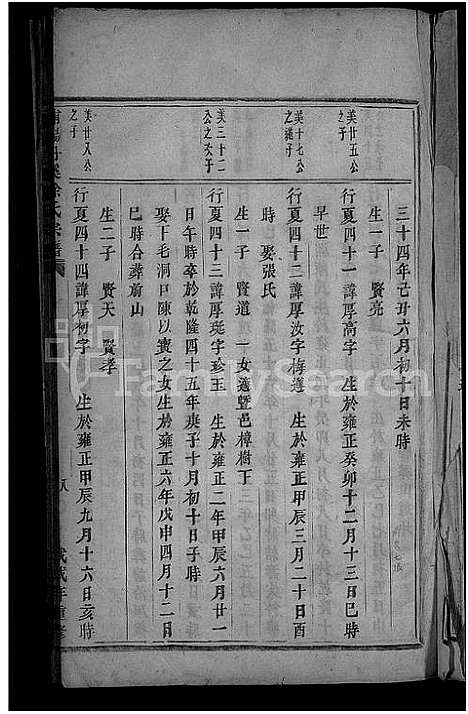 三十四年己丑六月初十日未時
生一子　賢亮
美廿五公之子
行夏四十一諱厚高字　生於雍正癸卯十二月十三日巳時
早世
美十七公之繼子
行夏四十二諱厚汝字梅達　生於雍正甲辰三月二十日酉
時　娶張氏
生一子　賢道　一女適暨邑樟樹王
美三十二公之次子
行夏四十三諱厚珽字珍玉　生於雍正二年甲辰六月廿一
日午時卒於乾隆四十五年庚子十月初十日子時
娶丁毛洞口陳以賓之女生於雍正六年戊申四月十二日
巳時合葬前山
生二子　賢天　賢孝
美廿八公之子
行夏四十四諱厚初字　生於雍正甲辰九月十六日亥時
氏宗譜
八
年重修
FamilySearch